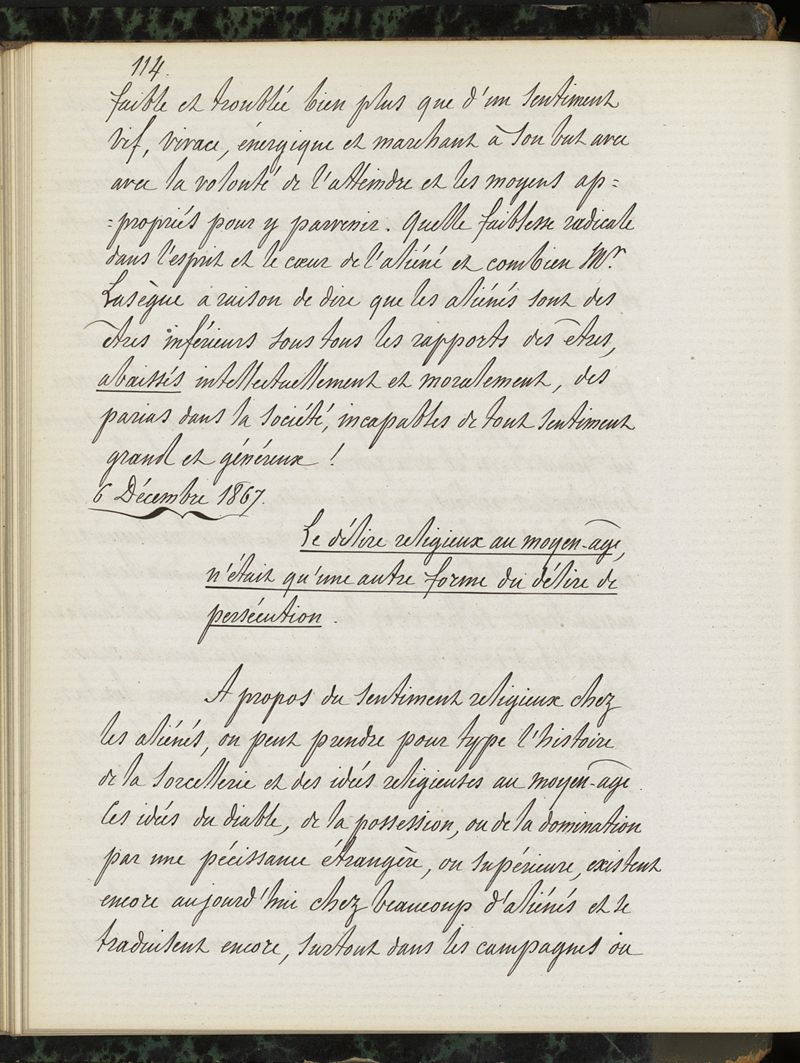 114.
faible et troublée bien plus que d'un sentiment
vif, vivace, énergique et marchant à son but avec
avec la volonté de l'atteindre et les moyens ap=
=propriés pour y parvenir. Quelle faiblesse radicale
dans l'esprit et le cœur de l'aliéné et combien Mr.
Lasègue a raison de dire que les aliénés sont des
êtres inférieurs sous tous les rapports des êtres,
abaissés intellectuellement et moralement, des
parias dans la société, incapables de tout sentiment
grand et généreux !
6 Décembre 1867.
Le délire religieux au moyen-age,
n'était qu'une autre forme du délire de
persécution.
A propos du sentiment religieux chez
les aliénés, on peut prendre pour type l'histoire
de la sorcellerie et des idées religieuses au moyen-age.
Ces idées du diable, de la possession, ou de la domination
par une péissance étrangère, ou supérieure, existent
encore aujourd'hui chez beaucoup d'aliénés et se
traduisent encore, surtout dans les campagnes ou